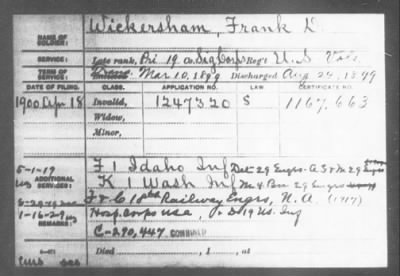 NAME OF SOLDIER: Wickersham, Frank D.
SERVICE: Late rank, Pri 19 Co. Sig Corps Reg't U.S. Vols.
TERM OF SERVICE: Enlisted Mar 10, 1899 Discharged Aug 24, 1899
DATE OF FILING. CLASS. APPLICATION NO. LAW CERTIFICATE NO.
1900 Apr 18 Invalid, 1247320 S 1167,663
Widow,
Minor,
5-1-19 F 1 Idaho Inf
ADDITIONAL SERVICES: K 1 Wash Inf
F & C 18th Railway Engrs, N.A. (1917)
1-16-29 Hosp. Corps USA, D 19 US. Inf
REMARKS: C-290,447 COMBINED
Died , 1 , at